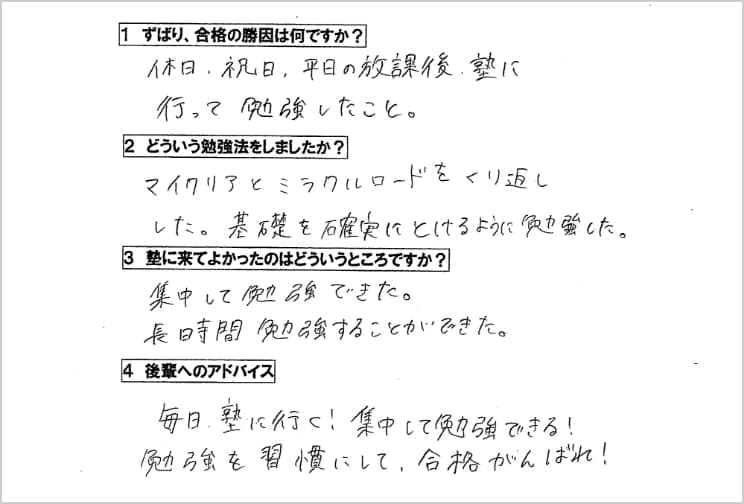 1 ずばり、合格の勝因は何ですか？
休日、祝日、平日の放課後、塾に
行って勉強したこと。
2 どういう勉強法をしましたか？
マイクリアとミラクルロードをくり返し
した。基礎を確実にとけるように勉強した。
3 塾に来てよかったのはどういうところですか？
集中して勉強できた。
長時間勉強することができた。
4 後輩へのアドバイス
毎日、塾に行く！集中して勉強できる！
勉強を習慣にして、合格がんばれ！